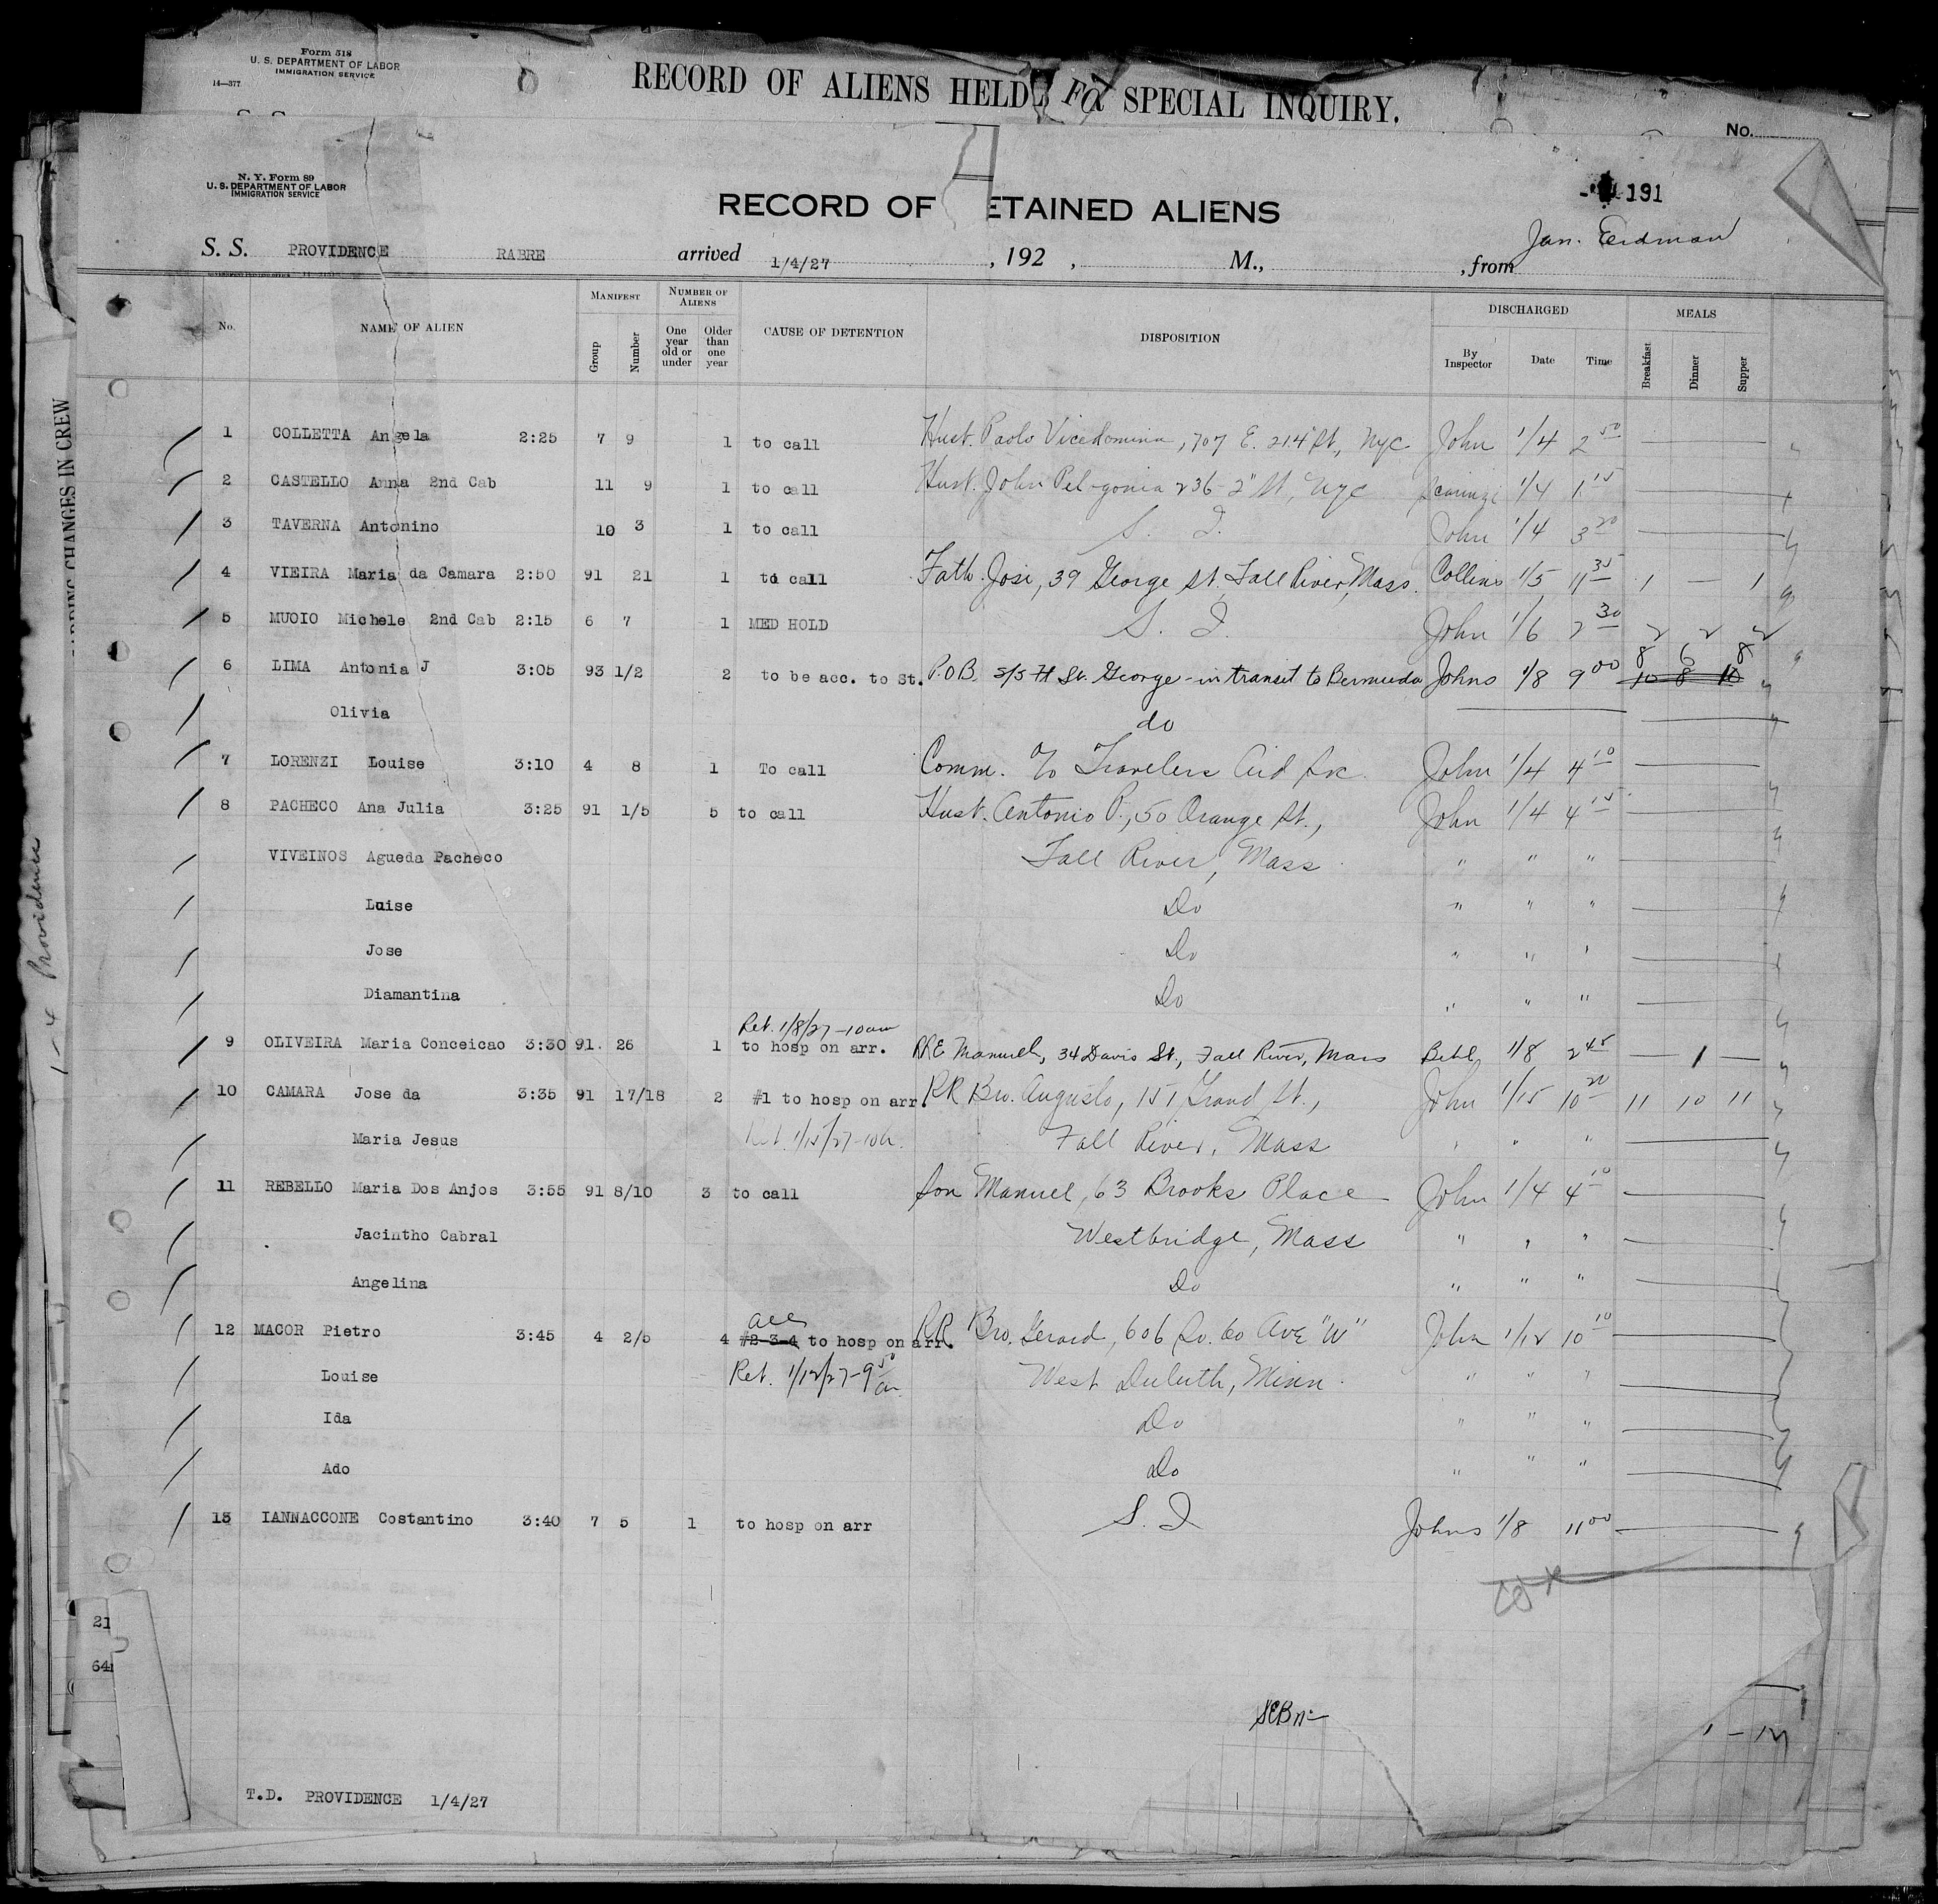 Form 518
U. S. DEPARTMENT OF LABOR
IMMIGRATION SERVICE
14—377
RECORD OF ALIENS HELD FOR SPECIAL INQUIRY.
No.
N. Y. Form 89
U. S. DEPARTMENT OF LABOR
IMMIGRATION SERVICE
191
RECORD OF ETAINED ALIENS
S. S. PROVIDENCE RABRE arrived 1/4/27, 192 , M., , from
Jan. Eerdman
No. NAME OF ALIEN MANIFEST Group Number NUMBER OF ALIENS One year old or under Older than one year CAUSE OF DETENTION DISPOSITION DISCHARGED By Inspector Date Time MEALS Breakfast Dinner Supper
1 COLLETTA Angela 2:25 7 9 1 to call Hust. Paolo Vicedomina, 707 E. 214 St., NYC John 1/4 2 50
2 CASTELLO Anna 2nd Cab 11 9 1 to call Hust. John 236-2" St, NYC 1/4 1 15
3 TAVERNA Antonino 10 3 1 to call S. I. John 1/4 3 20
4 VIEIRA Maria da Camara 2:50 91 21 1 to call Fath. Jose, 39 George St, Fall River, Mass. Collins 1/5 11 35 1 1
5 MUOIO Michele 2nd Cab 2:15 6 7 1 MED HOLD S. I. John 1/6 2 30 2 2 2
8 6 8
6 LIMA Antonia J 3:05 93 1/2 2 to be acc. to St. P.O.B. S/S Ft St. George - in transit to Bermuda Johns 1/8 9 00 10 8 10
Olivia do
7 LORENZI Louise 3:10 4 8 1 To call Comm. % Travelers Aid Soc. John 1/4 4 10
8 PACHECO Ana Julia 3:25 91 1/5 5 to call Hust. Antonio P., 50 Orange St., John 1/4 4 15
VIVEINOS Agueda Pacheco Fall River, Mass " " "
Luise Do " " "
Jose Do " " "
Diamantina Do " " "
Ret. 1/8/27-10am
9 OLIVEIRA Maria Conceicao 3:30 91 26 1 to hosp on arr. RRE Manuel, 34 Davis St., Fall River, Mass 1/8 2 45 1
10 CAMARA Jose da 3:35 91 17/18 2 #1 to hosp on arr. RR Bro. Augusto, 151 Grand St., John 1/15 10 20 11 10 11
Maria Jesus Ret. 1/15/27-10 Fall River, Mass " " "
11 REBELLO Maria Dos Anjos 3:55 91 8/10 3 to call Son Manuel, 63 Brooks Place John 1/4 4 10
Jacintho Cabral Westbridge, Mass " " "
Angelina Do " " "
all
12 MACOR Pietro 3:45 4 2/5 4 #2-3-4 to hosp on arr. RR Bro. Gerard, 606 So. 60 Ave "W" John 1/12 10 10
Louise Ret. 1/12/27-9 50 am West Duluth, Minn. " " "
Ida Do " " "
Ado Do " " "
13 IANNACCONE Costantino 3:40 7 5 1 to hosp on arr S. I Johns 1/8 11 00
21
64
1 - 4 Providence
T.D. PROVIDENCE 1/4/27